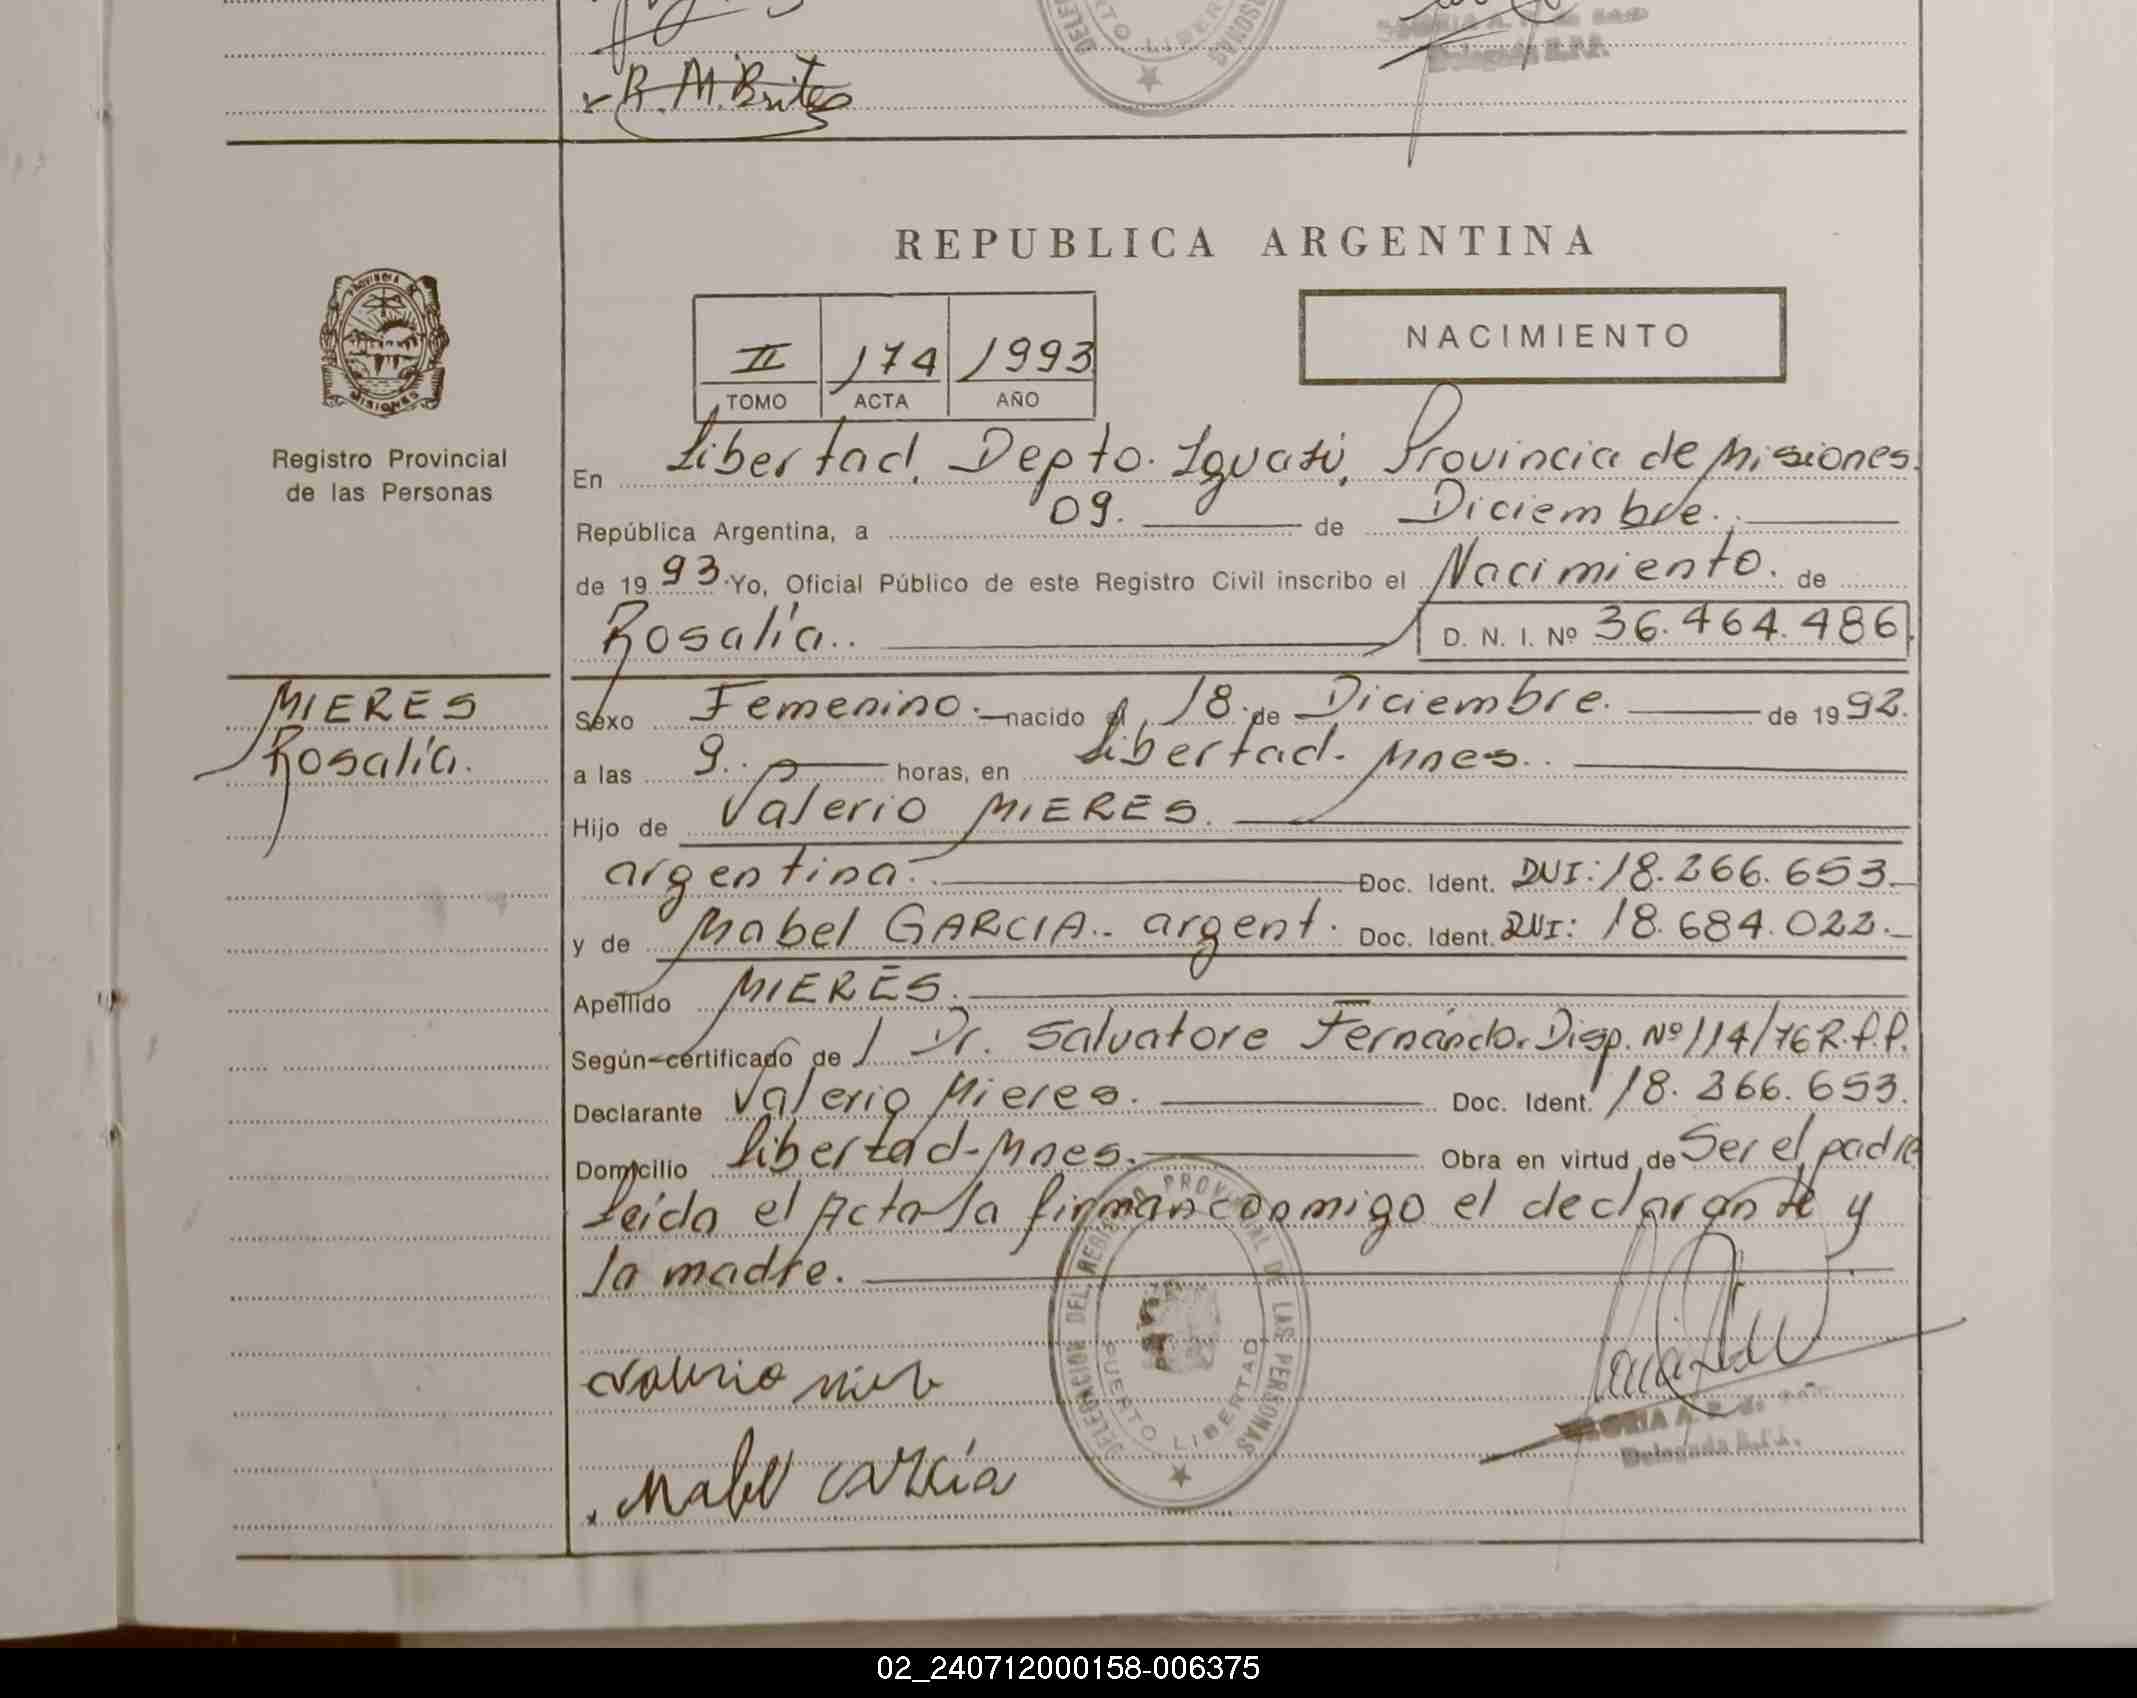 R. M. Brites
REPUBLICA ARGENTINA
II 174 1993
TOMO ACTA AÑO
NACIMIENTO
Registro Provincial
de las Personas
En Libertad, Depto. Iguazú, Provincia de Misiones.
República Argentina, a 09. de Diciembre.
de 1993. Yo, Oficial Público de este Registro Civil inscribo el Nacimiento. de
Rosalía.. D. N. I. Nº 36.464.486
MIERES
Rosalía.
Sexo Femenino. nacido el 18. de Diciembre. de 1992.
a las 9.. horas, en Libertad- Mnes..
Hijo de Valerio MIERES.
argentina. Doc. Ident. DUI: 18.266.653.
y de Mabel GARCIA.. argent. Doc. Ident. DUI: 18.684.022.
Apellido MIERES.
Según certificado de Dr. Salvatore Fernándo. Disp. Nº 114/76 R.P.P.
Declarante Valerio Mieres. Doc. Ident. 18.266.653.
Domicilio Libertad-Mnes. Obra en virtud de Ser el padre
Leída el Acta la firman conmigo el declarante y
la madre.
DELEGACION DEL REGISTRO PROVINCIAL DE LAS PERSONAS
PUERTO LIBERTAD
Valerio
Mabel Garcia
02_240712000158-006375